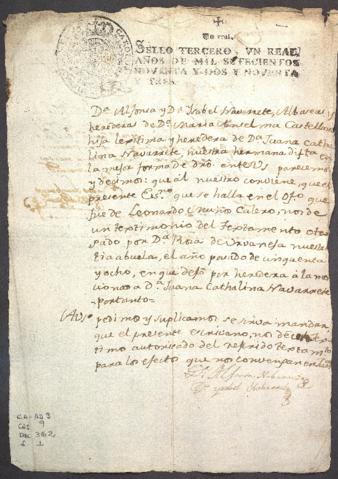 Un real.
SELLO TERCERO, VN REAL,
AÑOS DE MIL SETECIENTOS
NOVENTA Y DOS Y NOVENTA
Y TRES.
Da. Alfonsa y Da. Ysabel Navarrete, Albaceas y
herederas de Da. Maria Anselma Castellanos
hija lexitima y heredera de Da. Juana Catha
lina Navarrete nuestra hermana difta en
la mejor forma de dro. ante Vs parecemos
y decimos: que al nuestro conviene, que el
presente Ess.no que se halla en el Ofo que
fue de Leonardo Muños Calero, nos de
un testimonio del Testamento otor
gado por Da. de nuestra
tia abuela, el año pasado de cinquenta
y ocho, en que dejó por heredera á la men
cionada Da. Juana Cathalina Navarrete
portanto
AVs pedimos y suplicamos se sirva mandar
que el presente escrivano, nos dé testi
timo autorizado del referido Testamto
para los efectos que nos convengan
Da. Alfonsa Nabarrete
Da. Ysabel Nabarrete
CA-AD3
CAJ 9
DOC 362
f. 1